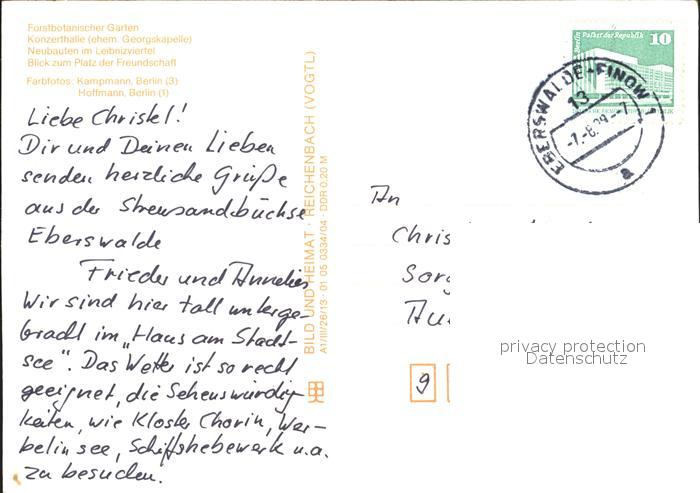 Forstbotanischer Garten
Konzerthalle (ehem. Georgskapelle)
Neubauten im Leibnizviertel
Blick zum Platz der Freundschaft
Farbfotos: Kampmann, Berlin (3)
Hoffmann, Berlin (1)
Liebe Christel!
Dir und Deinen Lieben
senden herzliche Grüße
aus der Streusandbüchse
Eberswalde
Frieder und Annelies
Wir sind hier toll unterge-
bracht im „Haus am Stadt-
see". Das Wetter ist so recht
geeignet, die Sehenswürdig-
keiten, wie Kloster Chorin, Wer-
belinsee, Schiffshebewerk u.a.
zu besuchen.
BILD UND HEIMAT · REICHENBACH (VOGTL)
A1/III/26/13 · 01 05 0334/04 · DDR 0,20 M
Berlin, Palast der Republik
10
EBERSWALDE-FINOW 1
13
a
An
Chris
Sor
9
privacy protection
Datenschutz